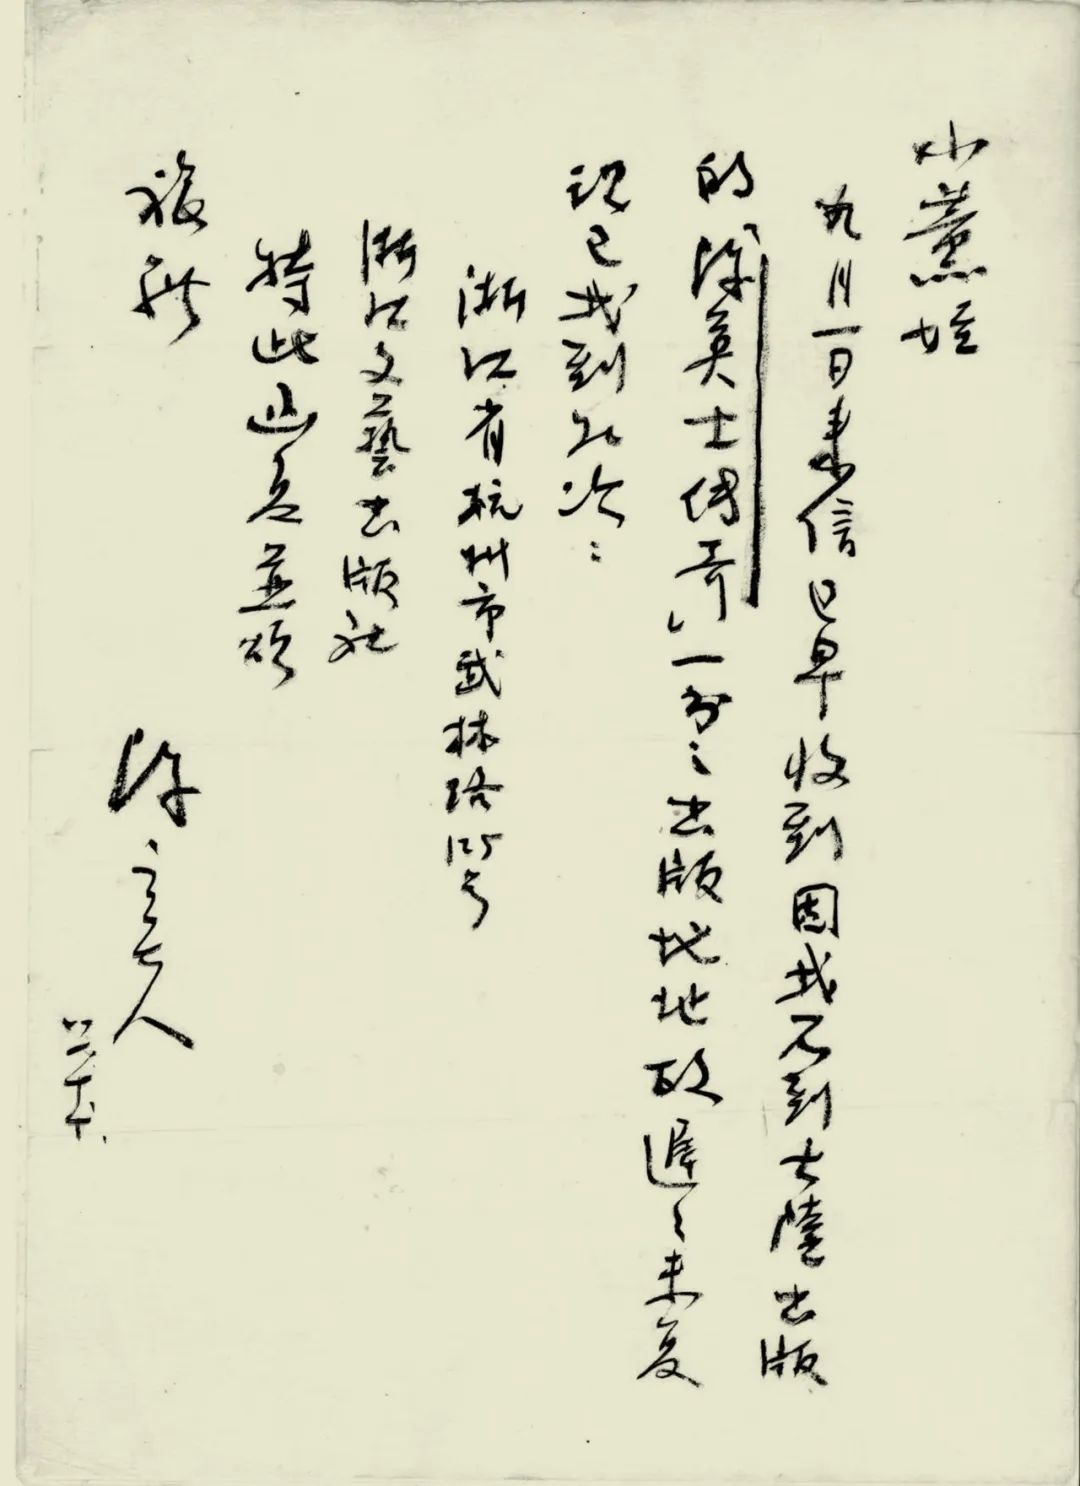 小薰姪
九月一日来信已早收到因我冘到大陸出版
的陳英士傳奇一書之出版地址故遲々未复
現已找到如次：
浙江省杭州市武林路125号
浙江文藝出版社
特此函复並頌
複祺
陳立夫